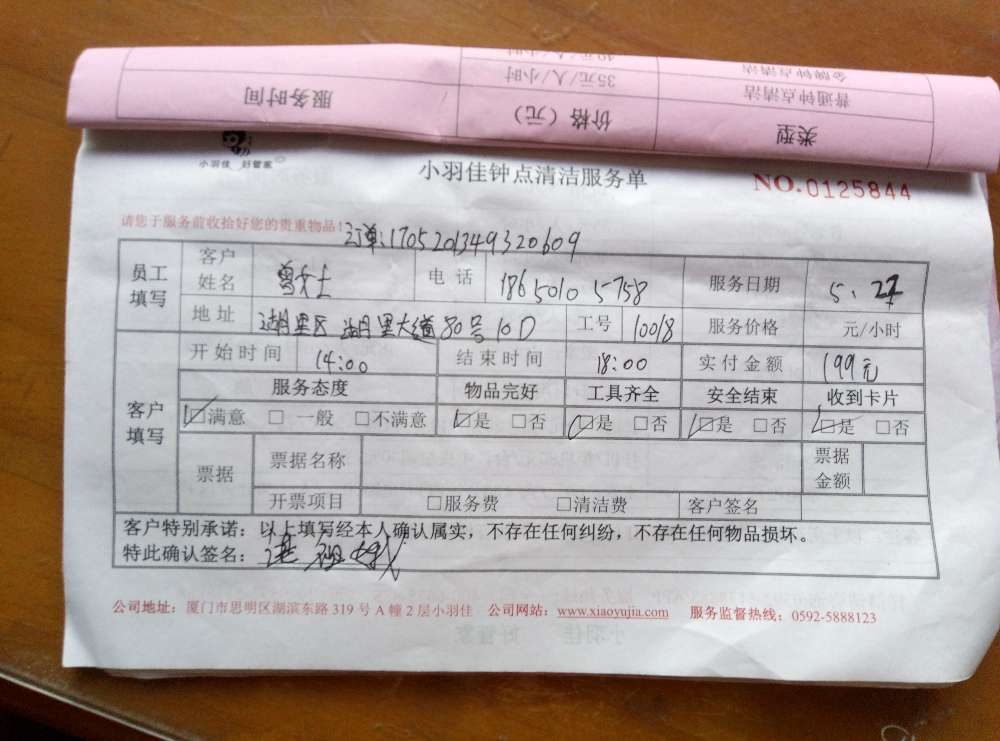 服务时间 价格（元） 类型
35元/人/小时 普通钟点清洁
金牌钟点清洁
小羽佳 好管家
小羽佳钟点清洁服务单
NO.0125844
请您于服务前收拾好您的贵重物品！订单:1705201349320609
员工填写 客户姓名 曾女士 电话 18650105758 服务日期 5.27
地址 湖里区湖里大道80号10D 工号 10018 服务价格 元/小时
客户填写 开始时间 14:00 结束时间 18:00 实付金额 199元
服务态度 物品完好 工具齐全 安全结束 收到卡片
☑满意 □一般 □不满意 ☑是 □否 ☑是 □否 ☑是 □否 ☑是 □否
票据 票据名称 票据金额
开票项目 □服务费 □清洁费 客户签名
客户特别承诺：以上填写经本人确认属实，不存在任何纠纷，不存在任何物品损坏。
特此确认签名：
公司地址：厦门市思明区湖滨东路 319 号 A 幢 2 层小羽佳 公司网站：www.xiaoyujia.com 服务监督热线：0592-5888123